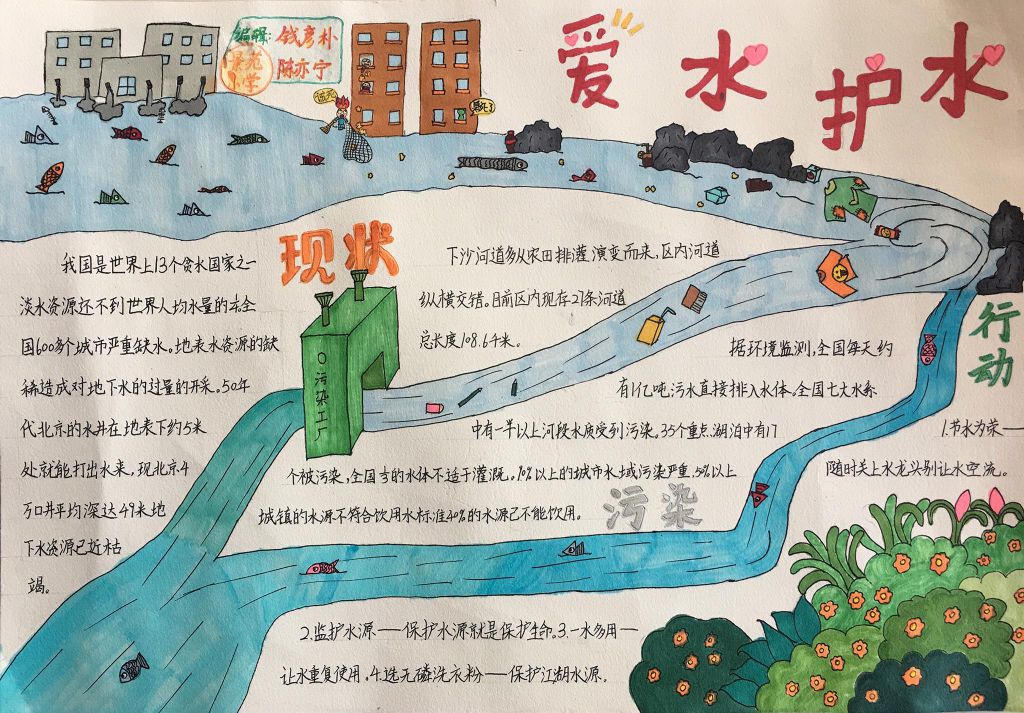 爱水护水
编辑:钱彦朴
陈亦宁
小学
现状
我国是世界上13个贫水国家之一
淡水资源还不到世界人均水量的去全
国600多个城市严重缺水。地表水资源的缺
稀造成对地下水的过量的开采。50年
代北京的水井在地表下约5米
处就能打出水来,现北京4
万口井平均深达49米地
下水资源已近枯
竭。
下沙河道多从农田排灌演变而来,区内河道
纵横交错。目前区内现存21条河道
总长度108.64米。
污染工厂
污染
据环境监测,全国每天约
有1亿吨污水直接排入水体。全国七大水系
中有一半以上河段水质受到污染。35个重点湖泊中有17
个被污染,全国的水体不适于灌溉。90%以上的城市水域污染严重.50%以上
城镇的水源不符合饮用水标准40%的水源已不能饮用。
行动
1.节水为荣——
随时关上水龙头别让水空流。
2.监护水源——保护水源就是保护生命。3.一水多用——
让水重复使用。4.选无磷洗衣粉——保护江湖水源。